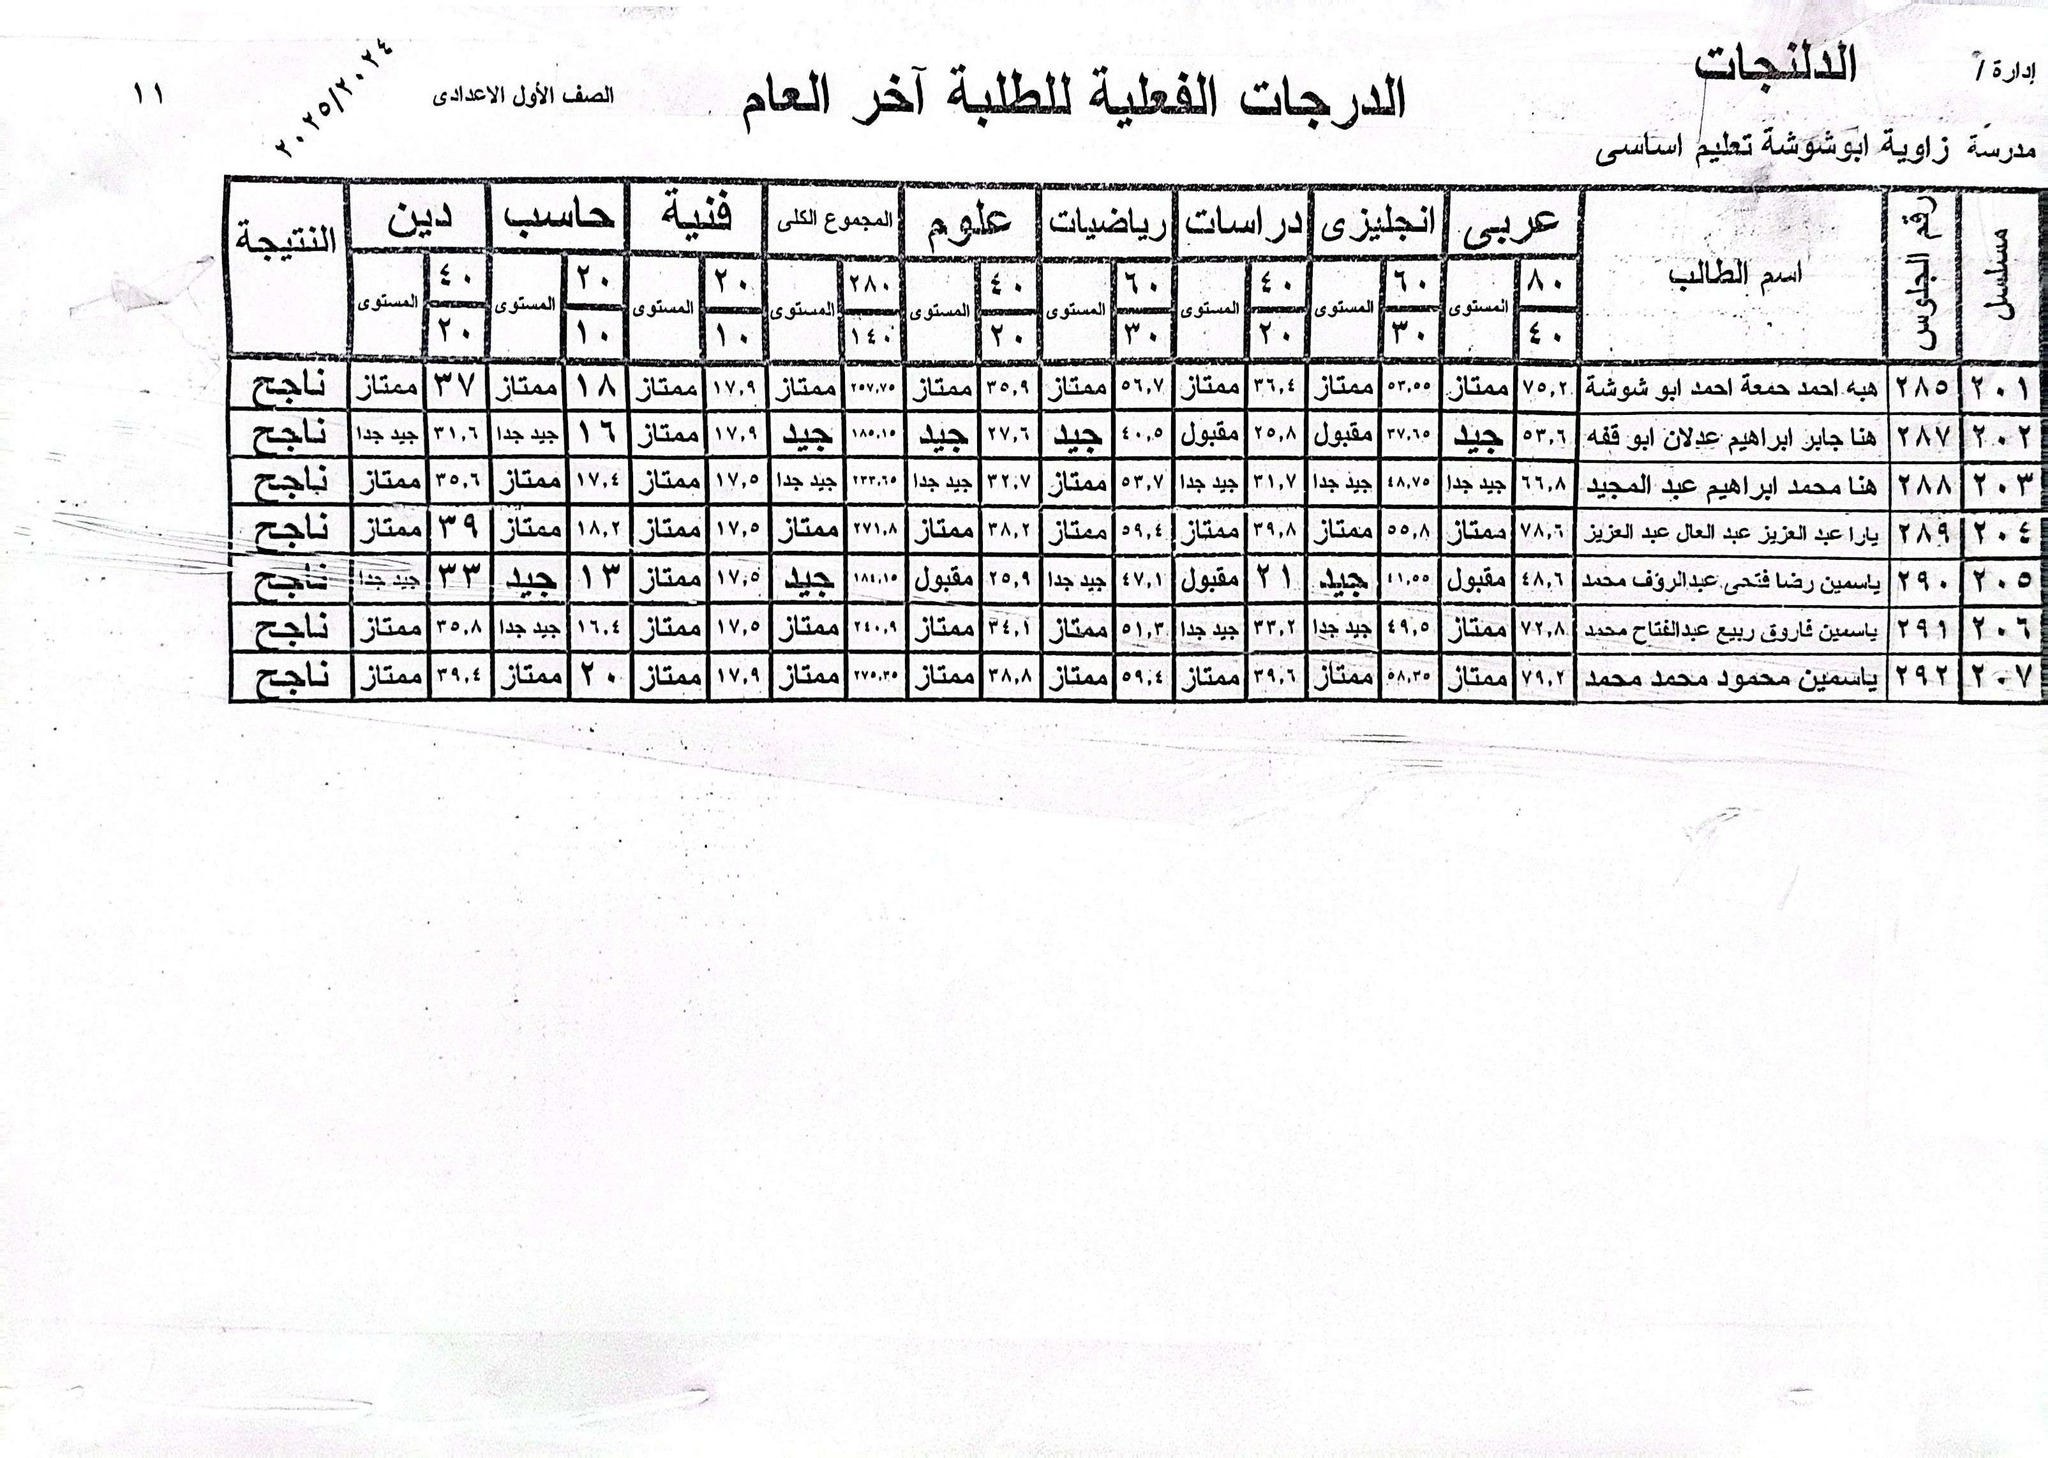 إدارة / الدلنجات
مدرسة زاوية ابوشوشة تعليم اساسى
الدرجات الفعلية للطلبة آخر العام
الصف الأول الاعدادى
٢٠٢٥/٢٠٢٤
١١
مسلسل رقم الجلوس اسم الطالب عربى انجليزى دراسات رياضيات علوم المجموع الكلى فنية حاسب دين النتيجة
٨٠ المستوى ٦٠ المستوى ٤٠ المستوى ٦٠ المستوى ٤٠ المستوى ٢٨٠ المستوى ٢٠ المستوى ٢٠ المستوى ٤٠ المستوى
٤٠ ٣٠ ٢٠ ٣٠ ٢٠ ١٤٠ ١٠ ١٠ ٢٠
٢٠١ ٢٨٥ هبه احمد جمعة احمد ابو شوشة ٧٥,٢ ممتاز ٥٣,٥٥ ممتاز ٣٦,٤ ممتاز ٥٦,٧ ممتاز ٣٥,٩ ممتاز ٢٥٧,٧٥ ممتاز ١٧,٩ ممتاز ١٨ ممتاز ٣٧ ممتاز ناجح
٢٠٢ ٢٨٧ هنا جابر ابراهيم عدلان ابو قفه ٥٣,٦ جيد ٣٧,٦٥ مقبول ٢٥,٨ مقبول ٤٠,٥ جيد ٢٧,٦ جيد ١٨٥,١٥ جيد ١٧,٩ ممتاز ١٦ جيد جدا ٣١,٦ جيد جدا ناجح
٢٠٣ ٢٨٨ هنا محمد ابراهيم عبد المجيد ٦٦,٨ جيد جدا ٤٨,٧٥ جيد جدا ٣١,٧ جيد جدا ٥٣,٧ ممتاز ٣٢,٧ جيد جدا ٢٣٣,٦٥ جيد جدا ١٧,٥ ممتاز ١٧,٤ ممتاز ٣٥,٦ ممتاز ناجح
٢٠٤ ٢٨٩ يارا عبد العزيز عبد العال عبد العزيز ٧٨,٦ ممتاز ٥٥,٨ ممتاز ٣٩,٨ ممتاز ٥٩,٤ ممتاز ٣٨,٢ ممتاز ٢٧١,٨ ممتاز ١٧,٥ ممتاز ١٨,٢ ممتاز ٣٩ ممتاز ناجح
٢٠٥ ٢٩٠ ياسمين رضا فتحى عبدالروؤف محمد ٤٨,٦ مقبول ٤١,٥٥ جيد ٢١ مقبول ٤٧,١ جيد جدا ٢٥,٩ مقبول ١٨٤,١٥ جيد ١٧,٥ ممتاز ١٣ جيد ٣٣ جيد جدا ناجح
٢٠٦ ٢٩١ ياسمين فاروق ربيع عبدالفتاح محمد ٧٢,٨ ممتاز ٤٩,٥ جيد جدا ٣٣,٢ جيد جدا ٥١,٣ ممتاز ٣٤,١ ممتاز ٢٤٠,٩ ممتاز ١٧,٥ ممتاز ١٦,٤ جيد جدا ٣٥,٨ ممتاز ناجح
٢٠٧ ٢٩٢ ياسمين محمود محمد محمد ٧٩,٢ ممتاز ٥٨,٣٥ ممتاز ٣٩,٦ ممتاز ٥٩,٤ ممتاز ٣٨,٨ ممتاز ٢٧٥,٣٥ ممتاز ١٧,٩ ممتاز ٢٠ ممتاز ٣٩,٤ ممتاز ناجح